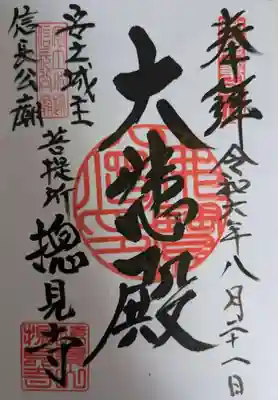 奉拝
令和六年八月二十一日
大悲殿
安土城主
信長公廟
菩提所
摠見寺